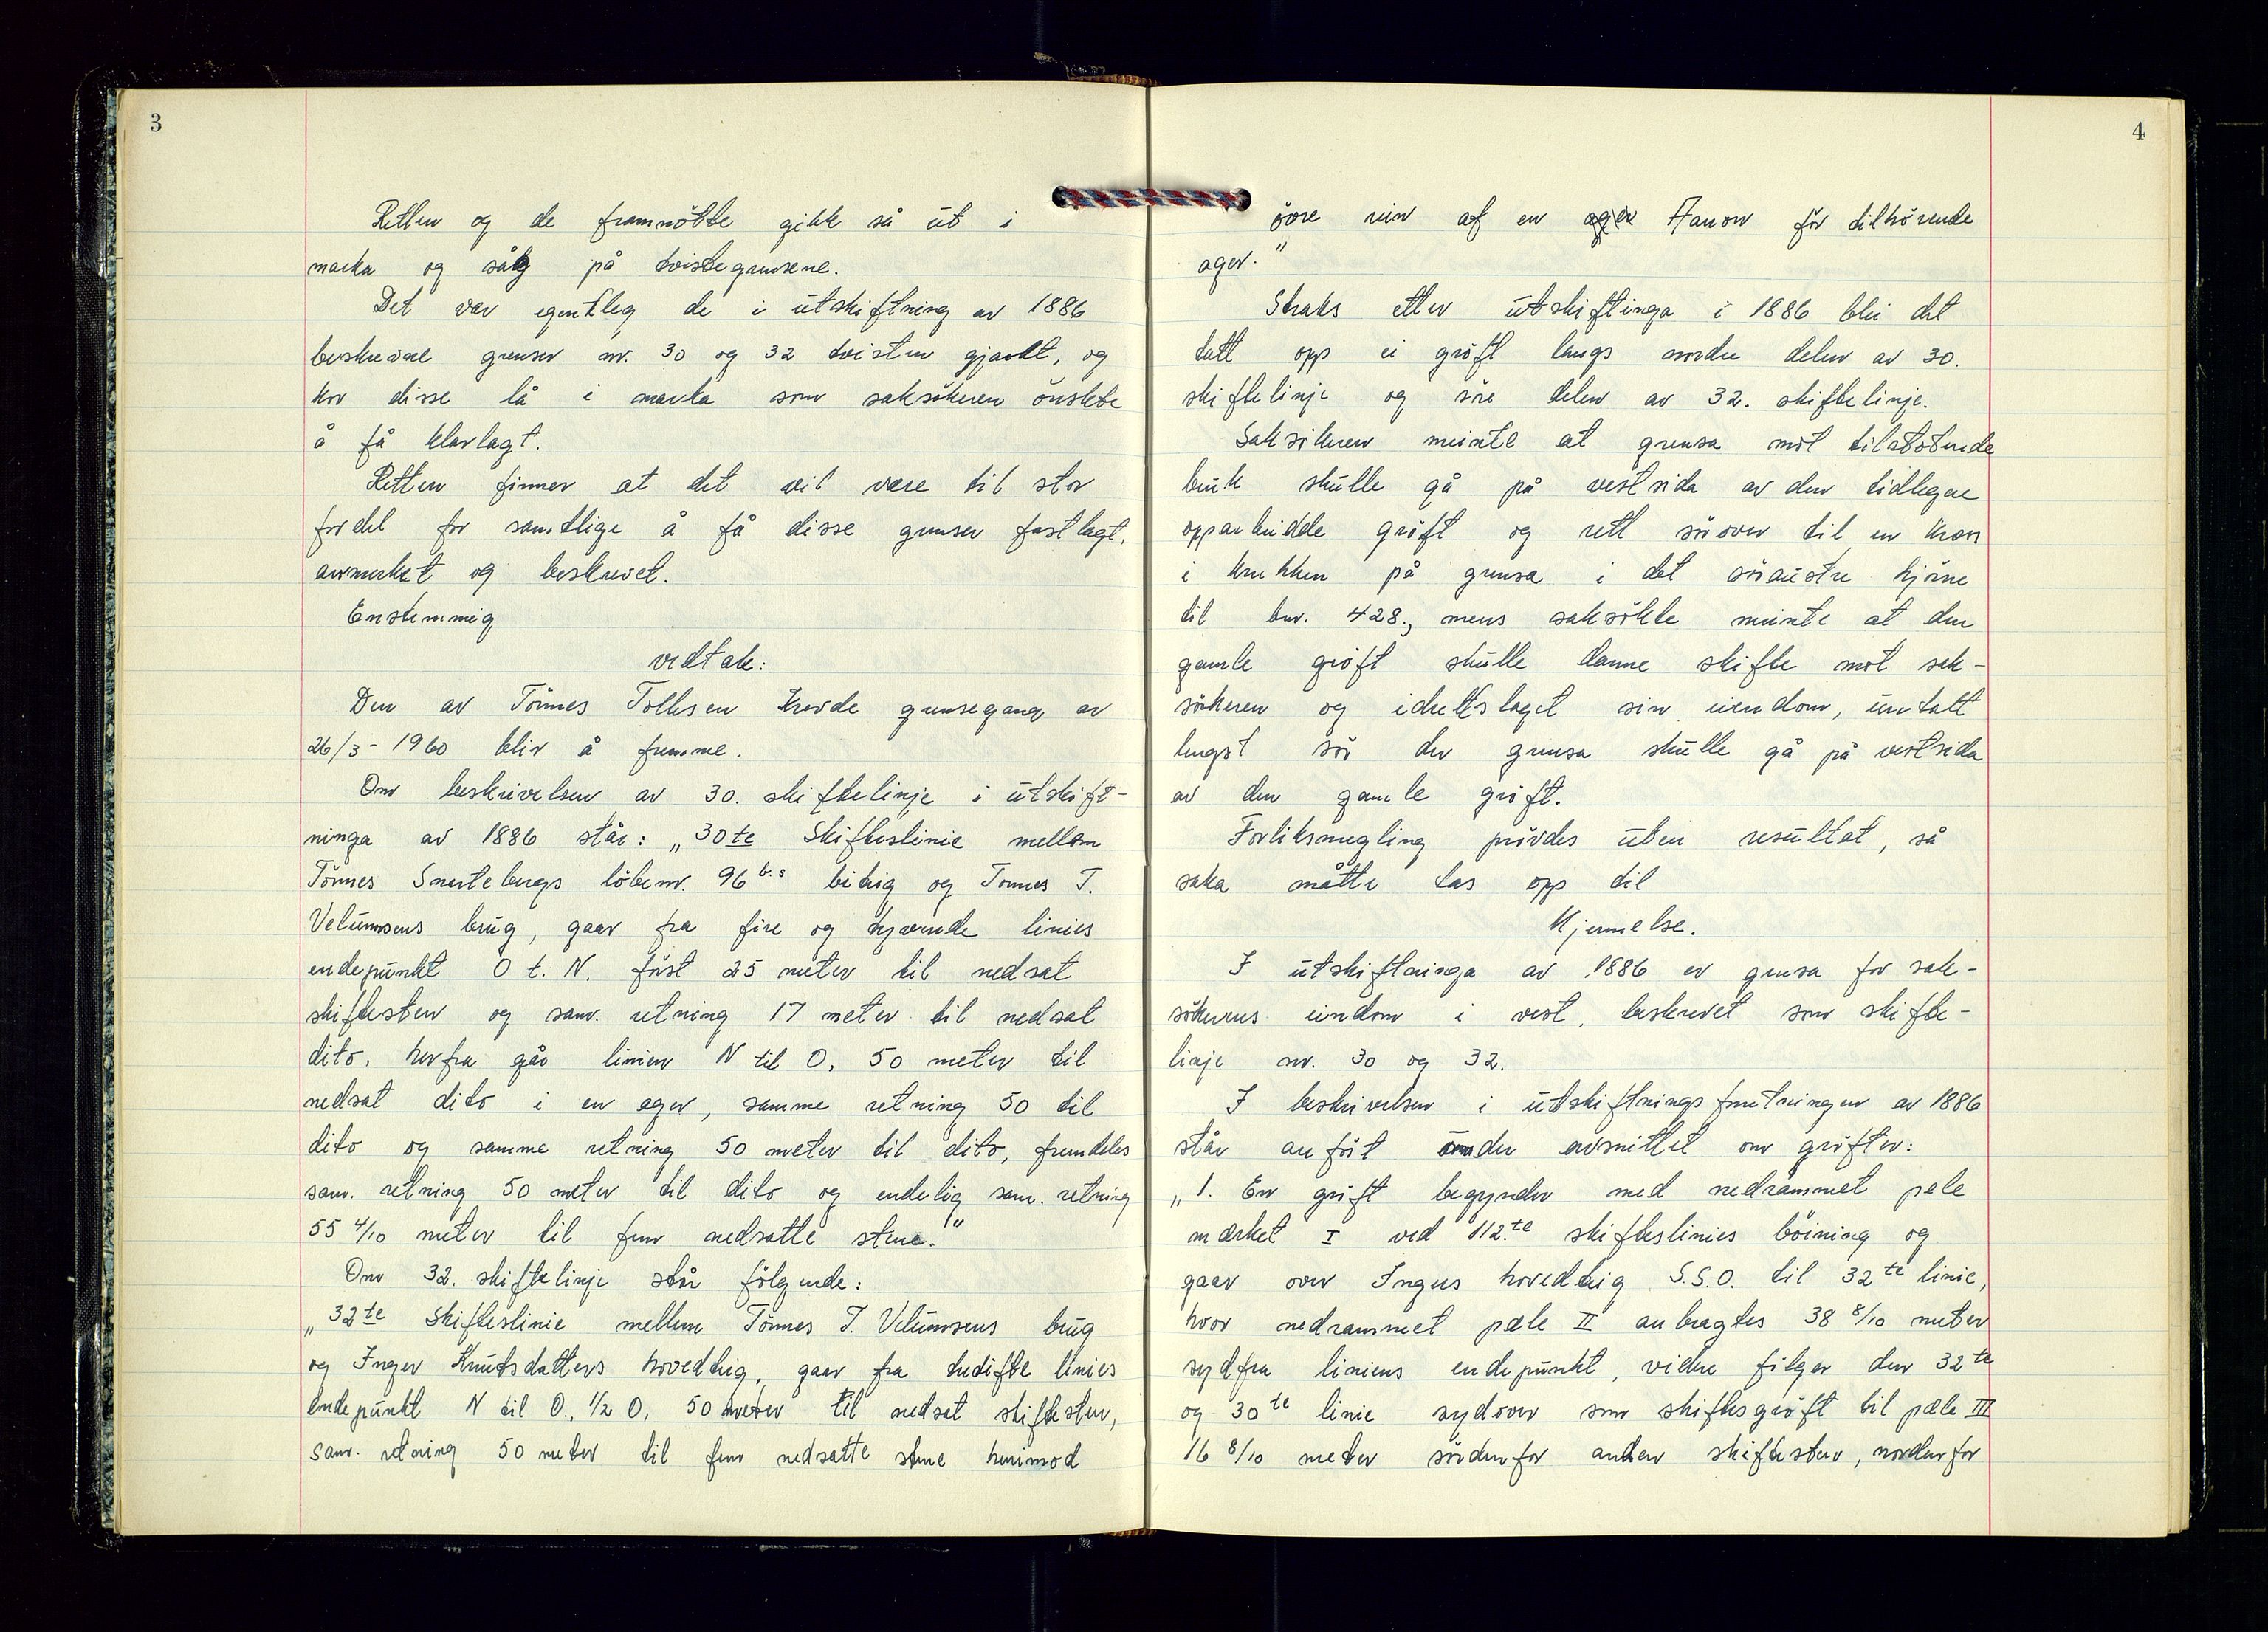 3
Retten og de frammötte gikk så ut i
marka og såg på tvistegrensene.
Det var egentleg de i utskiftning av 1886
beskrevne grenser nr. 30 og 32 tvisten gjaldt, og
kor disse lå i marka som saksökeren önskte
å få klarlagt.
Retten finner at det vil være til stor
fordel for samtlige å få disse grenser fastlagt,
avmerket og beskrevet.
Enstemmig
vedtak:
Den av Tönnes Tollksen krevde grensegang av
26/3 - 1960 blir å fremme.
Om beskrivelsen av 30. skiftelinje i utskift-
ninga av 1886 står: „30te Skifteslinie mellom
Tönnes Snartebergs löbenr. 96 b.s biteig og Tönnes T.
Velumsens brug, gaar fra fire og tjvende linies
endepunkt O t. N. först 25 meter til nedsat
skiftesten og sam. retning 17 meter til nedsat
dito, herfra går linien N til O, 50 meter til
nedsat dito i en ager, samme retning 50 til
dito og samme retning 50 meter til dito, fremdeles
sam. retning 50 meter til dito og endelig sam. retning
55 4/10 meter til fem nedsatte stene."
Om 32. skiftelinje står fölgende:
„32te Skifteslinie mellem Tönnes T. Velumsens brug
og Inger Knutsdatters hovedteig, gaar fra tredifte linies
endepunkt N til O., 1/2 O, 50 meter til nedsat skiftesten,
sam. retning 50 meter til fem nedsatte stene henimod
4
övre rein af en ager Aanon för tilhörende
ager."
Straks etter utskiftinga i 1886 blei det
tatt opp ei gröft langs nordre delen av 30.
skiftelinje og söre delen av 32. skiftelinje.
Saksökeren meinte at grensa mot tilstötende
bruk skulle gå på vestsida av den tidlegare
opparbeidde gröft og rett sörover til en kross
i krokken på grensa i det söraustre hjörne
til bnr. 428, mens saksökte meinte at den
gamle gröft skulle danne skifte mot sak-
sökeren og idrettslaget sin eiendom, untatt
lengst sör der grensa skulle gå på vestsida
av den gamle gröft.
Forliksmegling prövdes uten resultat, så
saka måtte tas opp til
Kjennelse.
I utskiftninga av 1886 er grensa for sak-
sökerens eiendom i vest, beskrevet som skifte-
linje nr. 30 og 32.
I beskrivelsen i utskiftningsforretningen av 1886
står anfört under avsnittet om gröfter:
„1. En gröft begynder med nedrammet pele
mærket I ved 112.te skifteslinies böining og
gaar over Ingers hovedteig S.S.O. til 32te linie,
hvor nedrammet pæle II anbragtes 38 8/10 meter
sydfra liniens endepunkt, videre fölger den 32te
og 30te linie sydover som skiftesgröft til pæle III
16 8/10 meter söndenfor anden skiftesten, nordenfor